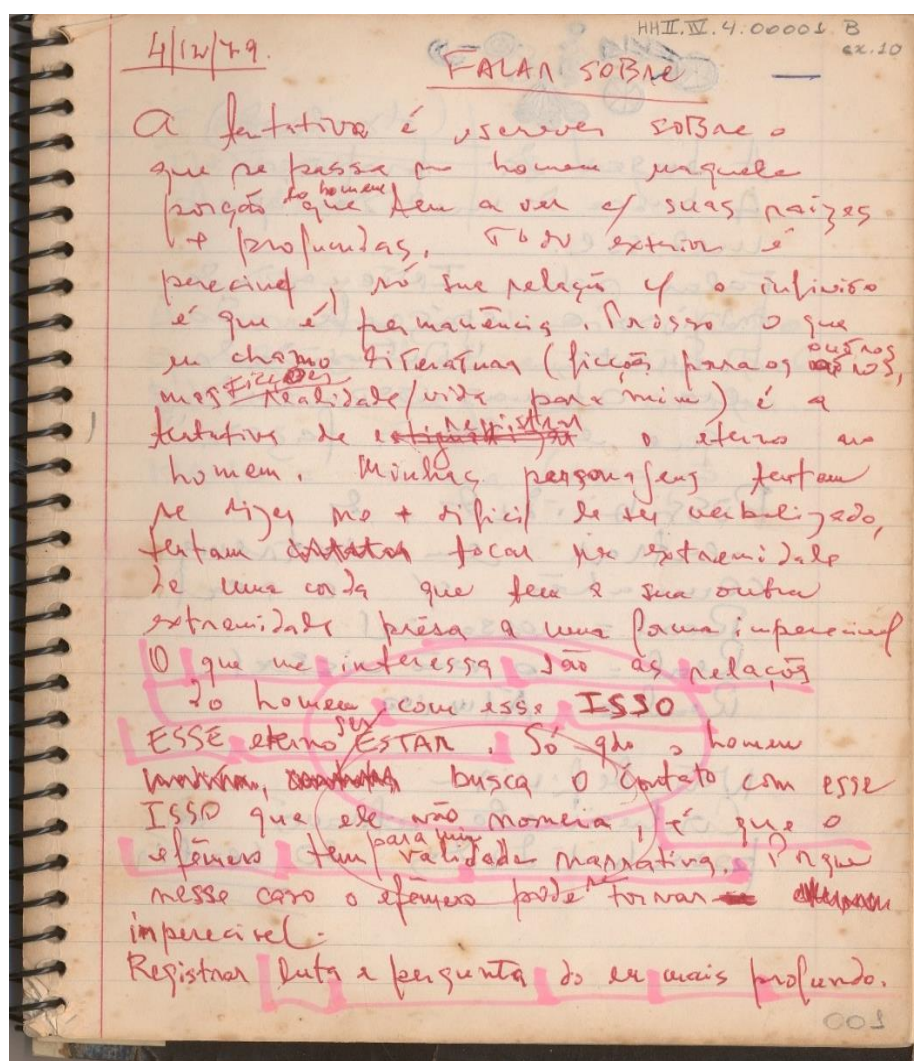 HHII.IV.4.00001.B
cx.10
4/12/79.
FALAR SOBRE
A tentativa é escrever sobre o
que se passa no homem naquela
porção do homem que tem a ver c/ suas raízes
+ profundas. Todo exterior é
perecível, só sua relação c/ o infinito
é que é permanência. Por isso o que
eu chamo Literatura (ficção para os outros,
mas realidade/vida para mim) é a
tentativa de registrar o eterno no
homem. Minhas personagens tentam
se dizer no + difícil de ser verbalizado,
tentam tocar na extremidade
de uma corda que tem a sua outra
extremidade prêsa a uma forma imperecível
O que me interessa são as relações
do homem com esse ISSO
ESSE eterno ser/ESTAR. Só qdo o homem
busca o contato com esse
ISSO que ele não nomeia, é que o
efêmero tem para mim validade narrativa. Porque
nesse caso o efêmero pode se tornar
imperecível.
Registrar luta e pergunta do ser mais profundo.
001